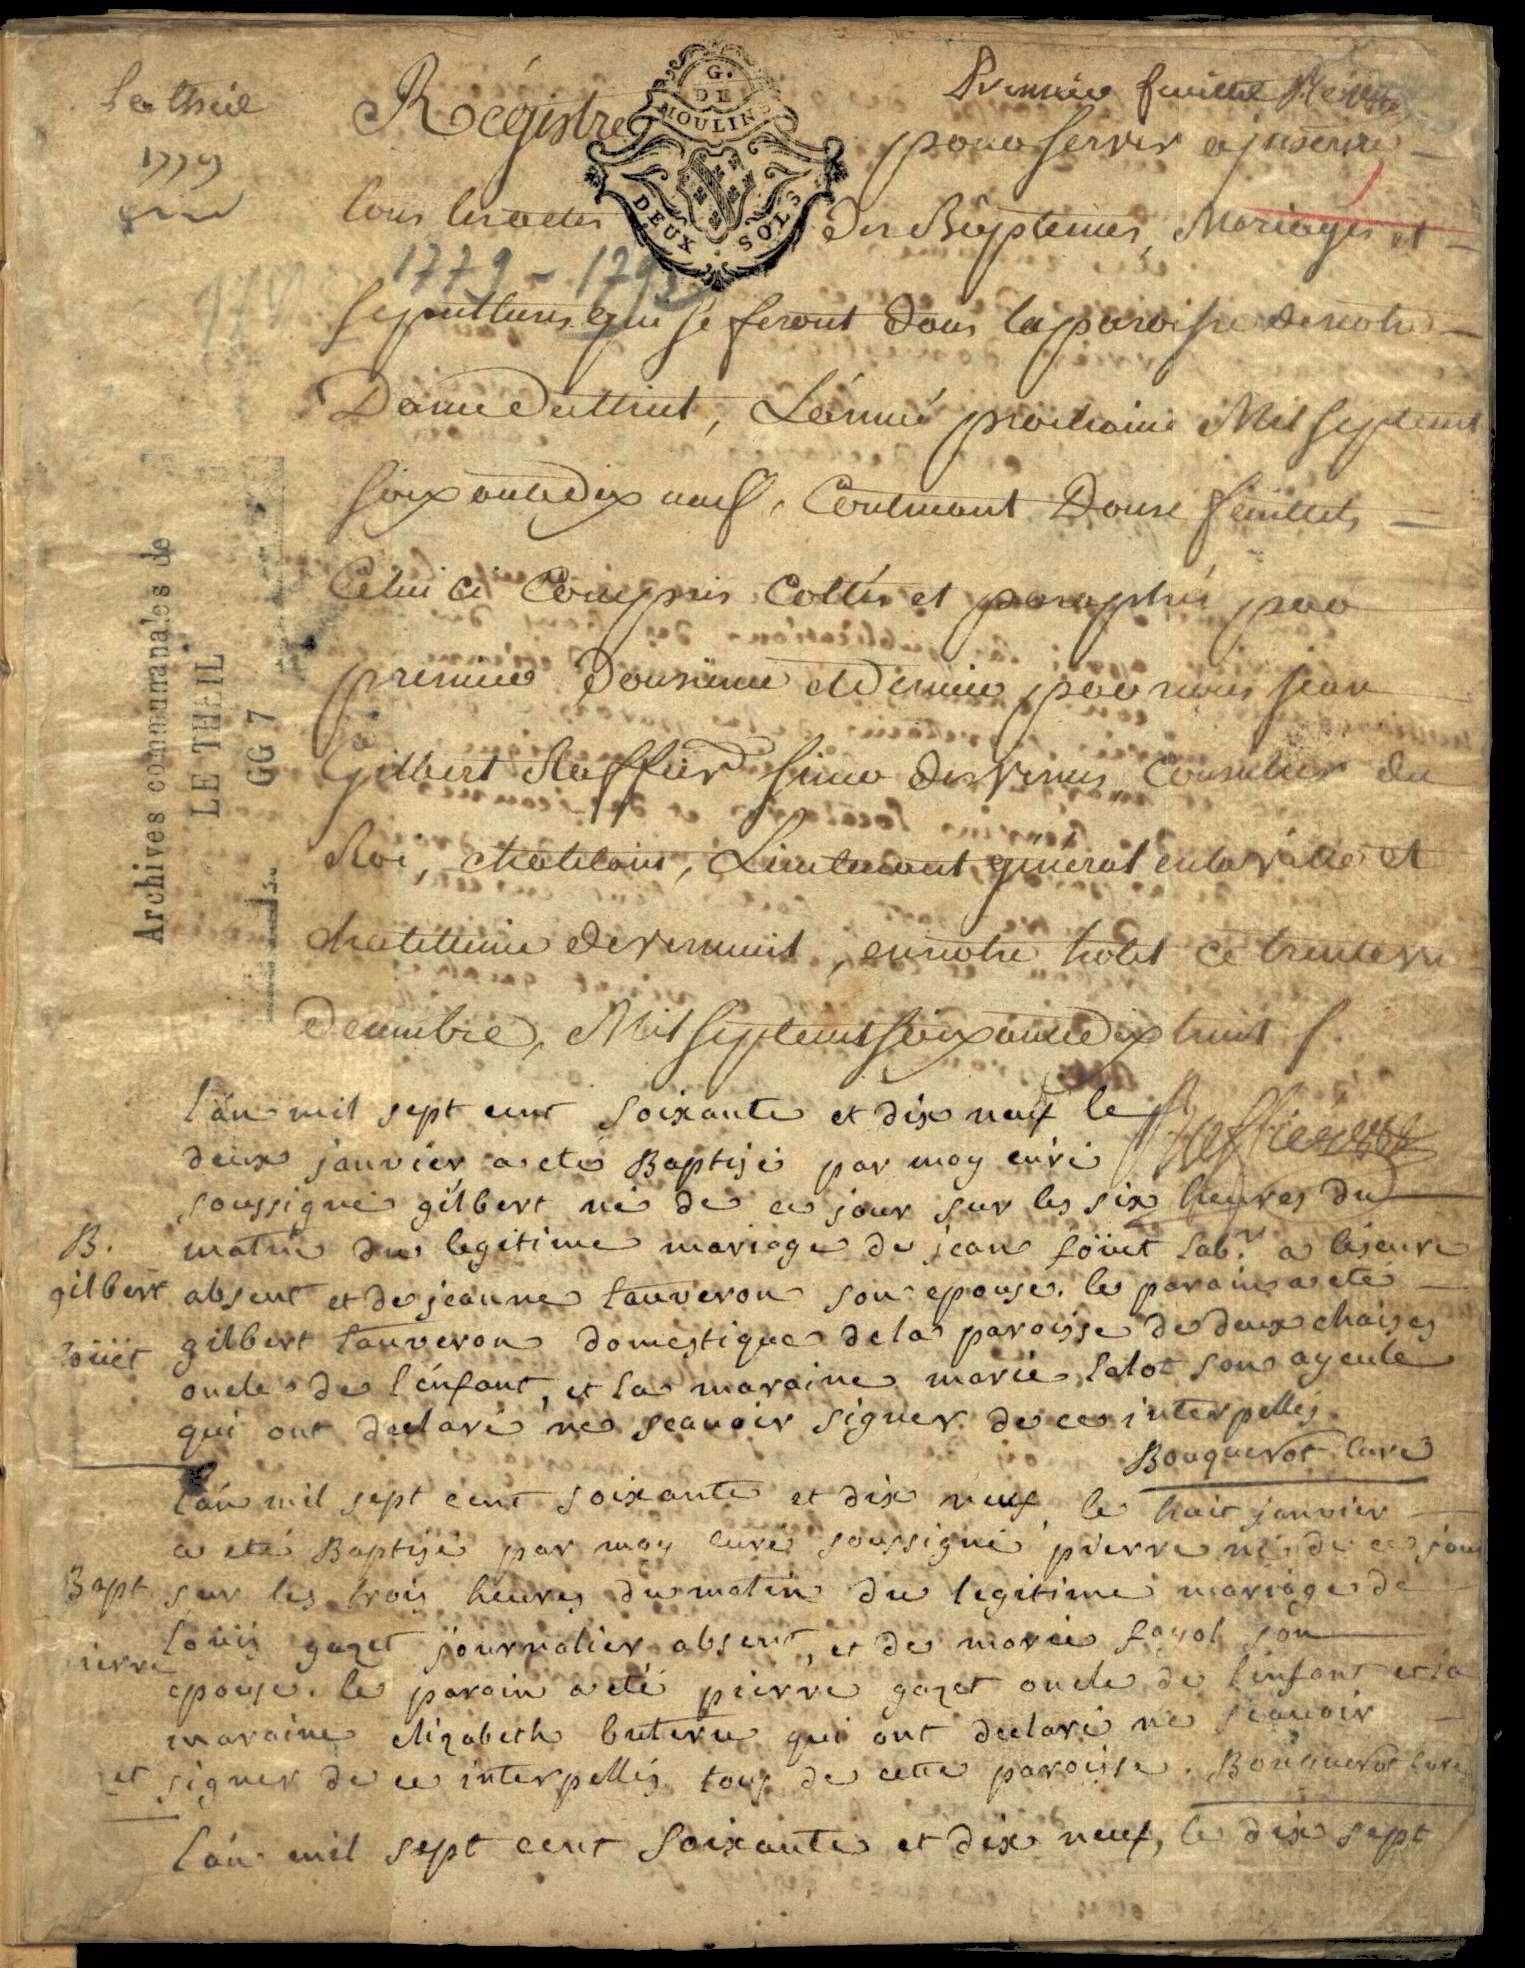 Le theil
1779
G. DE MOULINS
DEUX SOLS
Premier feuillet
Régistre pour servir a jnscrire
tous les actes des Bâptemes, Mariages et
1779 - 1792
sepultures qui se feront dans la paroisse de notre
Dame du theil, L'année prochaine Mil sept cent
soixante dix neuf, Contenant Douze feuillets
Celui ci Compris Cottés et paraphés par
premier Douzieme et Dernier par nous jean
Gilbert sieur des vernes Conseiller du
Roi, chatelain, Lieutenant general en la ville et
chatellenie de verneuil, en notre hotel ce trente un
Decembre, Mil sept cent soixante Dix huit
Archives communanales de
LE THEIL
GG 7
l'an mil sept cent soixante et dix neuf le
deux janvier a eté Baptisé par moy curé
soussigné gilbert né de ce jour sur les six heures du
B.
matin du legitime mariage de jean foüet lab.r a
gilbert
absent et de jeanne tauveron son epouse. le parain a eté
gilbert tauveron domestique de la paroisse de deux chaises
foüet
oncle de l'énfant, et la maraine marie lalot son ayeule
qui ont declaré ne scauoir signer de ce interpellés
Bouquerot Curé
l'an mil sept cent soixante et dix neuf, le huit janvier
a eté Baptisé par moy curé soussigné pierre né de ce jour
Bapt.
sur les trois heures du matin du legitime mariage de
loüis gazet journalier absent, et de marie fayol son
ierre
epouse. le parain a eté pierre gazet oncle de l'enfant et la
maraine elizabeth qui ont declaré ne scauoir
et
signer de ce interpellés tous de cette paroisse. Bouquerot Curé
l'an mil sept cent soixante et dix neuf, le dix sept